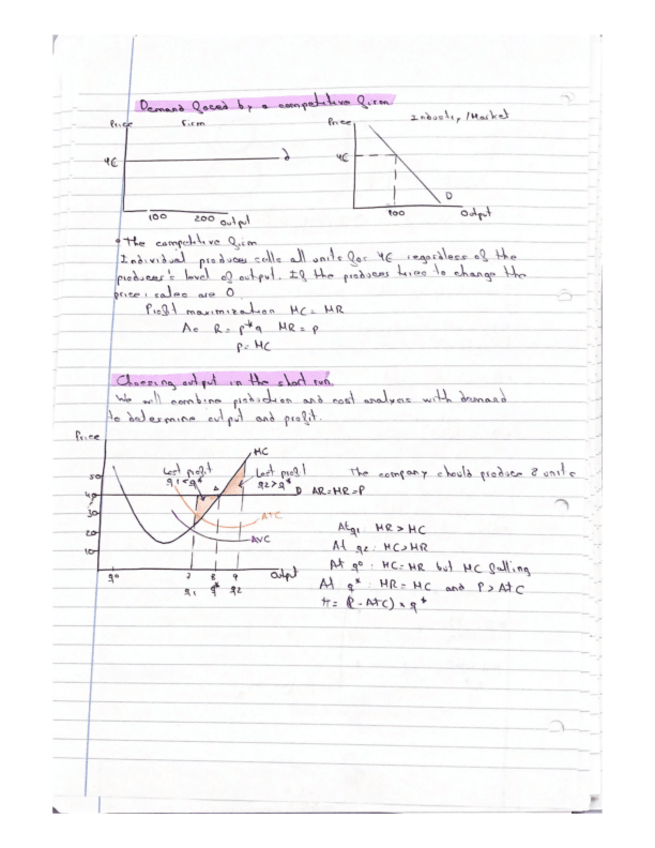 Demand faced by a competitive firm
Price Firm
4€
d
100 200 output
Price Industry/Market
4€
D
100 Output
• The competitive firm
Individual producer sells all units for 4€ regardless of the
producer's level of output. If the producer tries to change the
price, sales are 0.
Profit maximization MC = MR
As R = p*q MR = p
p = MC
Choosing output in the short run
We will combine production and cost analysis with demand
to determine output and profit.
Price
MC
Lost profit
q1<q*
Lost profit
q2>q*
The company should produce 8 units
50
40
30
20
10
A
D AR=MR=P
ATC
AVC
q0 7 8 9 Output
q1 q* q2
At q1: MR > MC
At q2: MC>MR
At q0: MC=MR but MC falling
At q*: MR = MC and P > AtC
π = (P - AtC) × q*